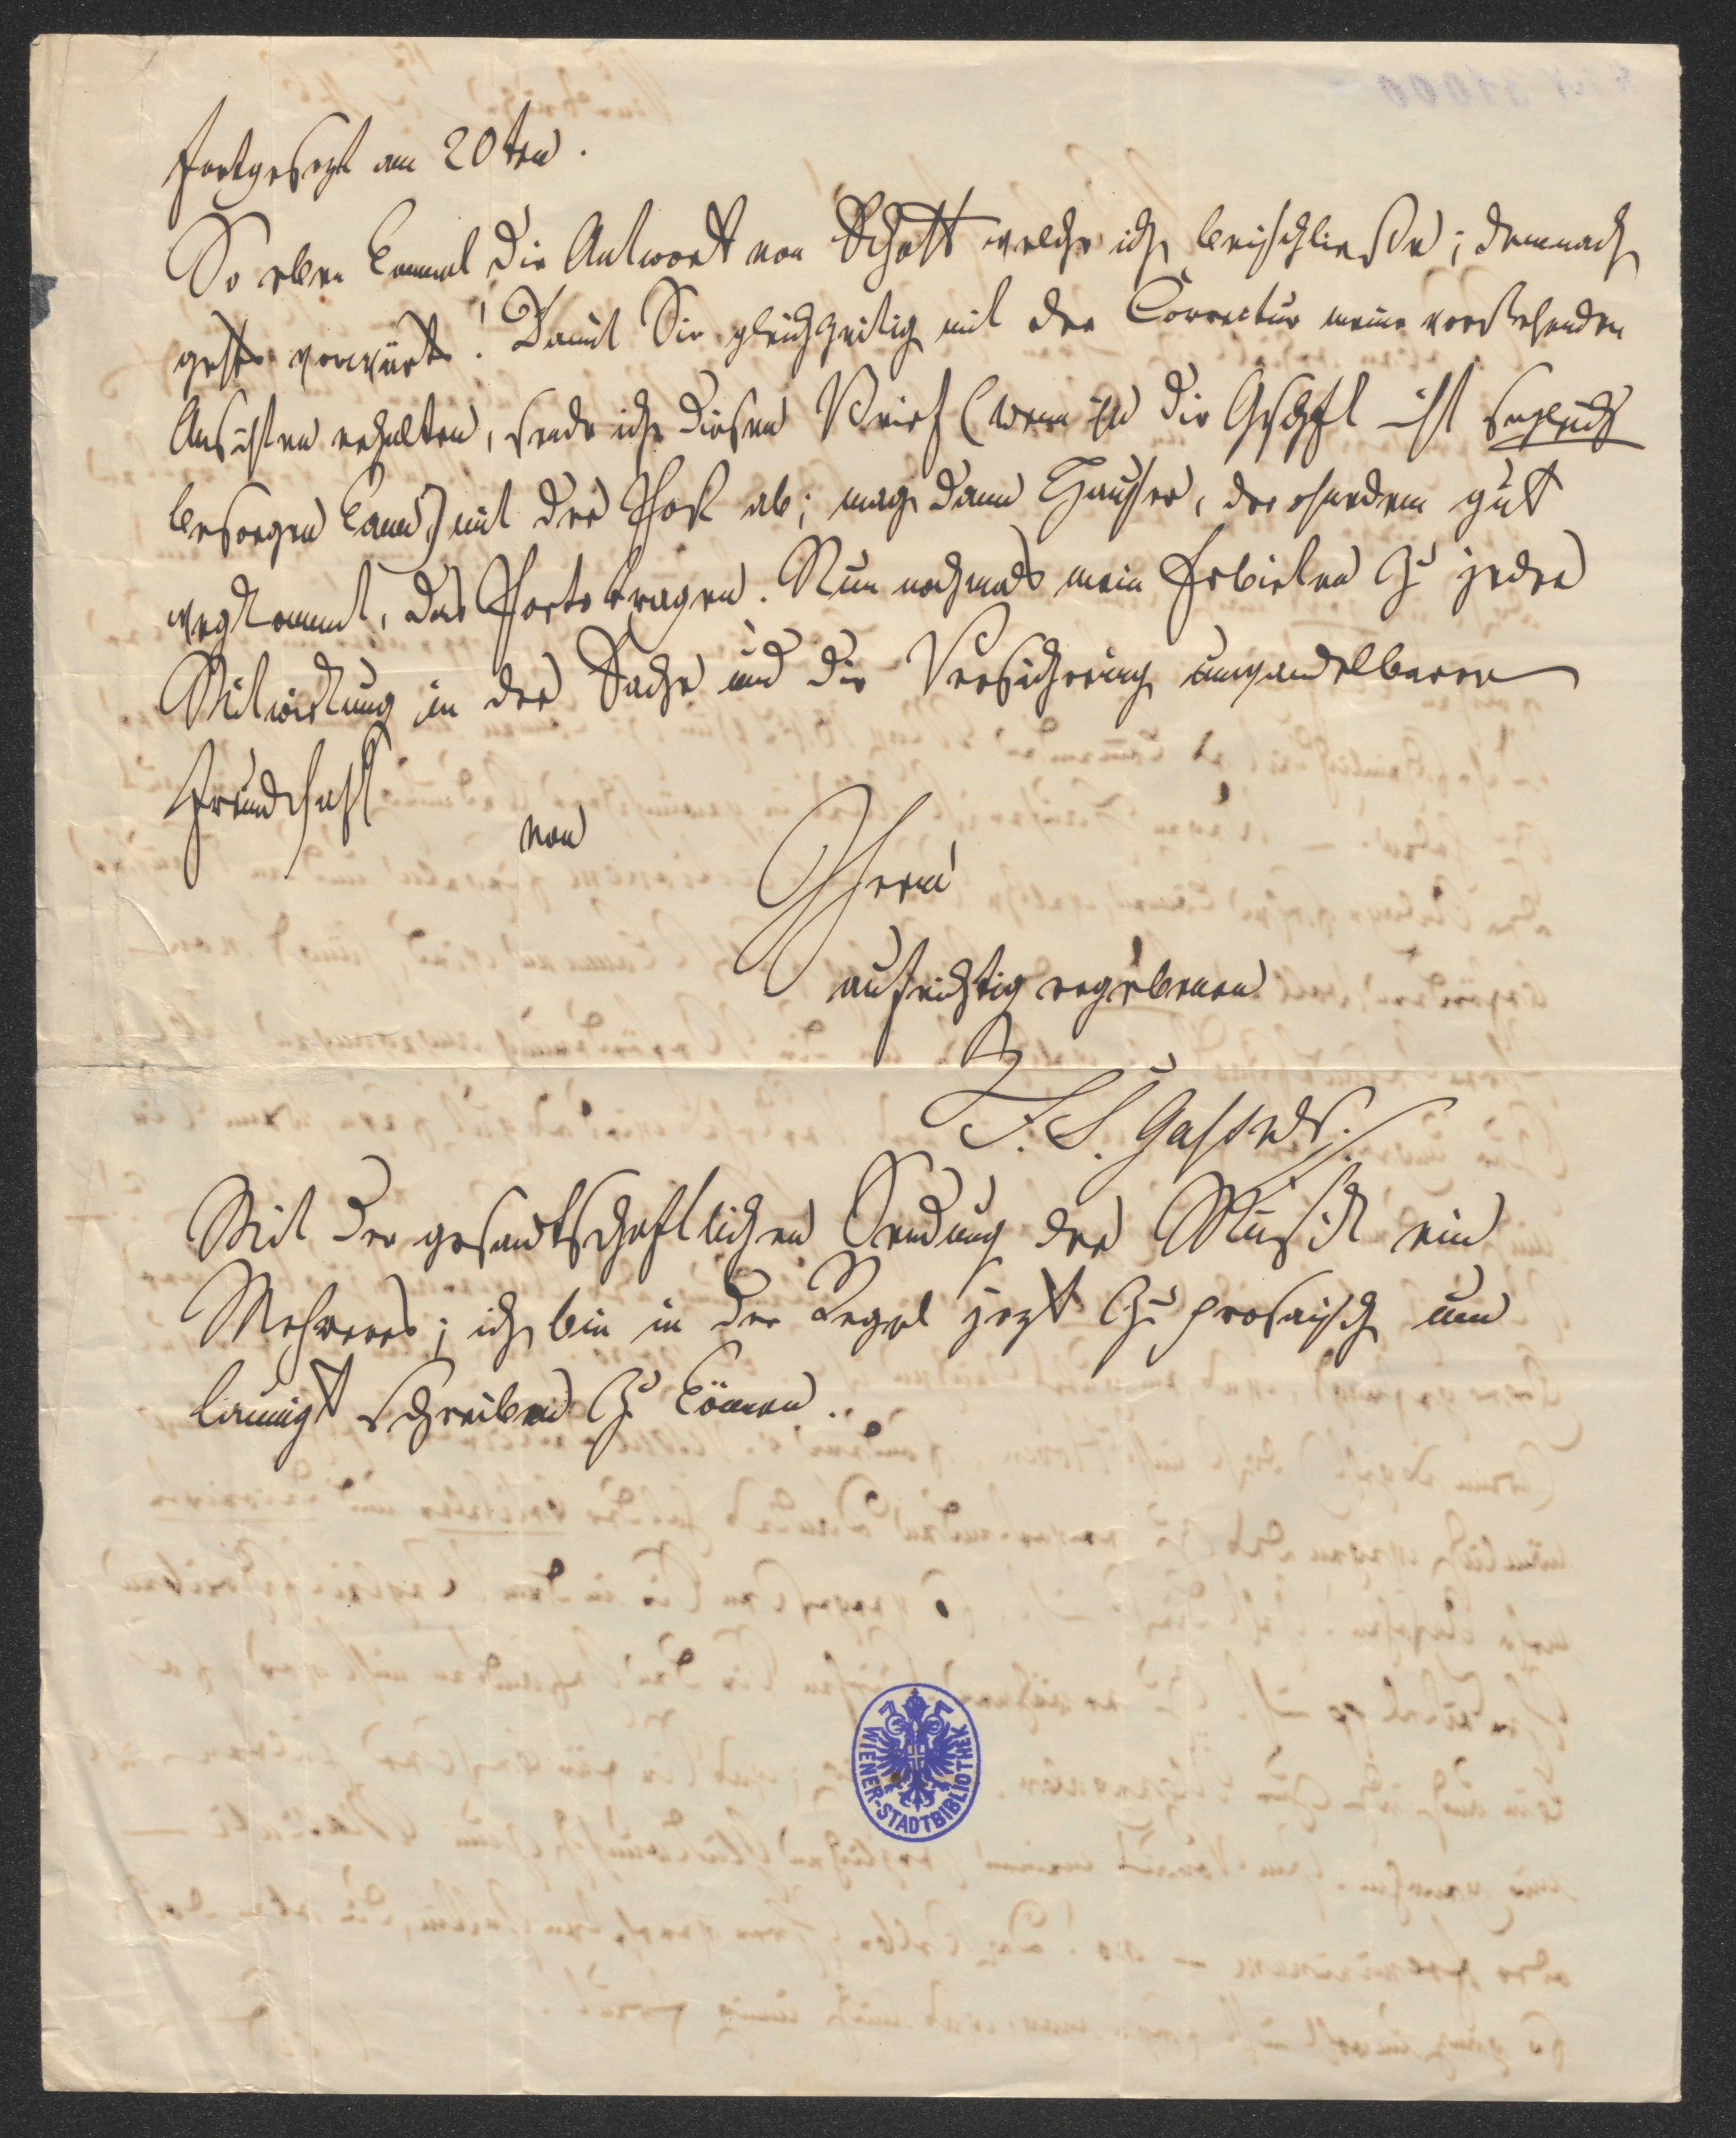 fortgesezt am 20ten.
So eben kommt die Antwort von Schott welche ich beischließe; demnach
gehts vorwärts! Damit Sie gleichzeitig mit der Correctur meine vorstehenden
Ansichten erhalten, sende ich diesen Brief (wenn ihn die Gschft nicht sogleich
besorgen kann) mit der Post ab; mag dann Hauser, der ohnedem gut
wegkommt, das Porto tragen. Nun nochmals mein Erbieten zu jeder
Mitwirkung in der Sache und die Versicherung unwandelbarer
Freundschaft
von
Ihrem
aufrichtig ergebenen
F. S. Gassner.
Mit der gesandtschaftlichen Sendung der Musik ein
Mehreres; ich bin in der Regel jezt zu prosaisch um
launigt schreiben zu können.
WIENER-STADTBIBLIOTHEK